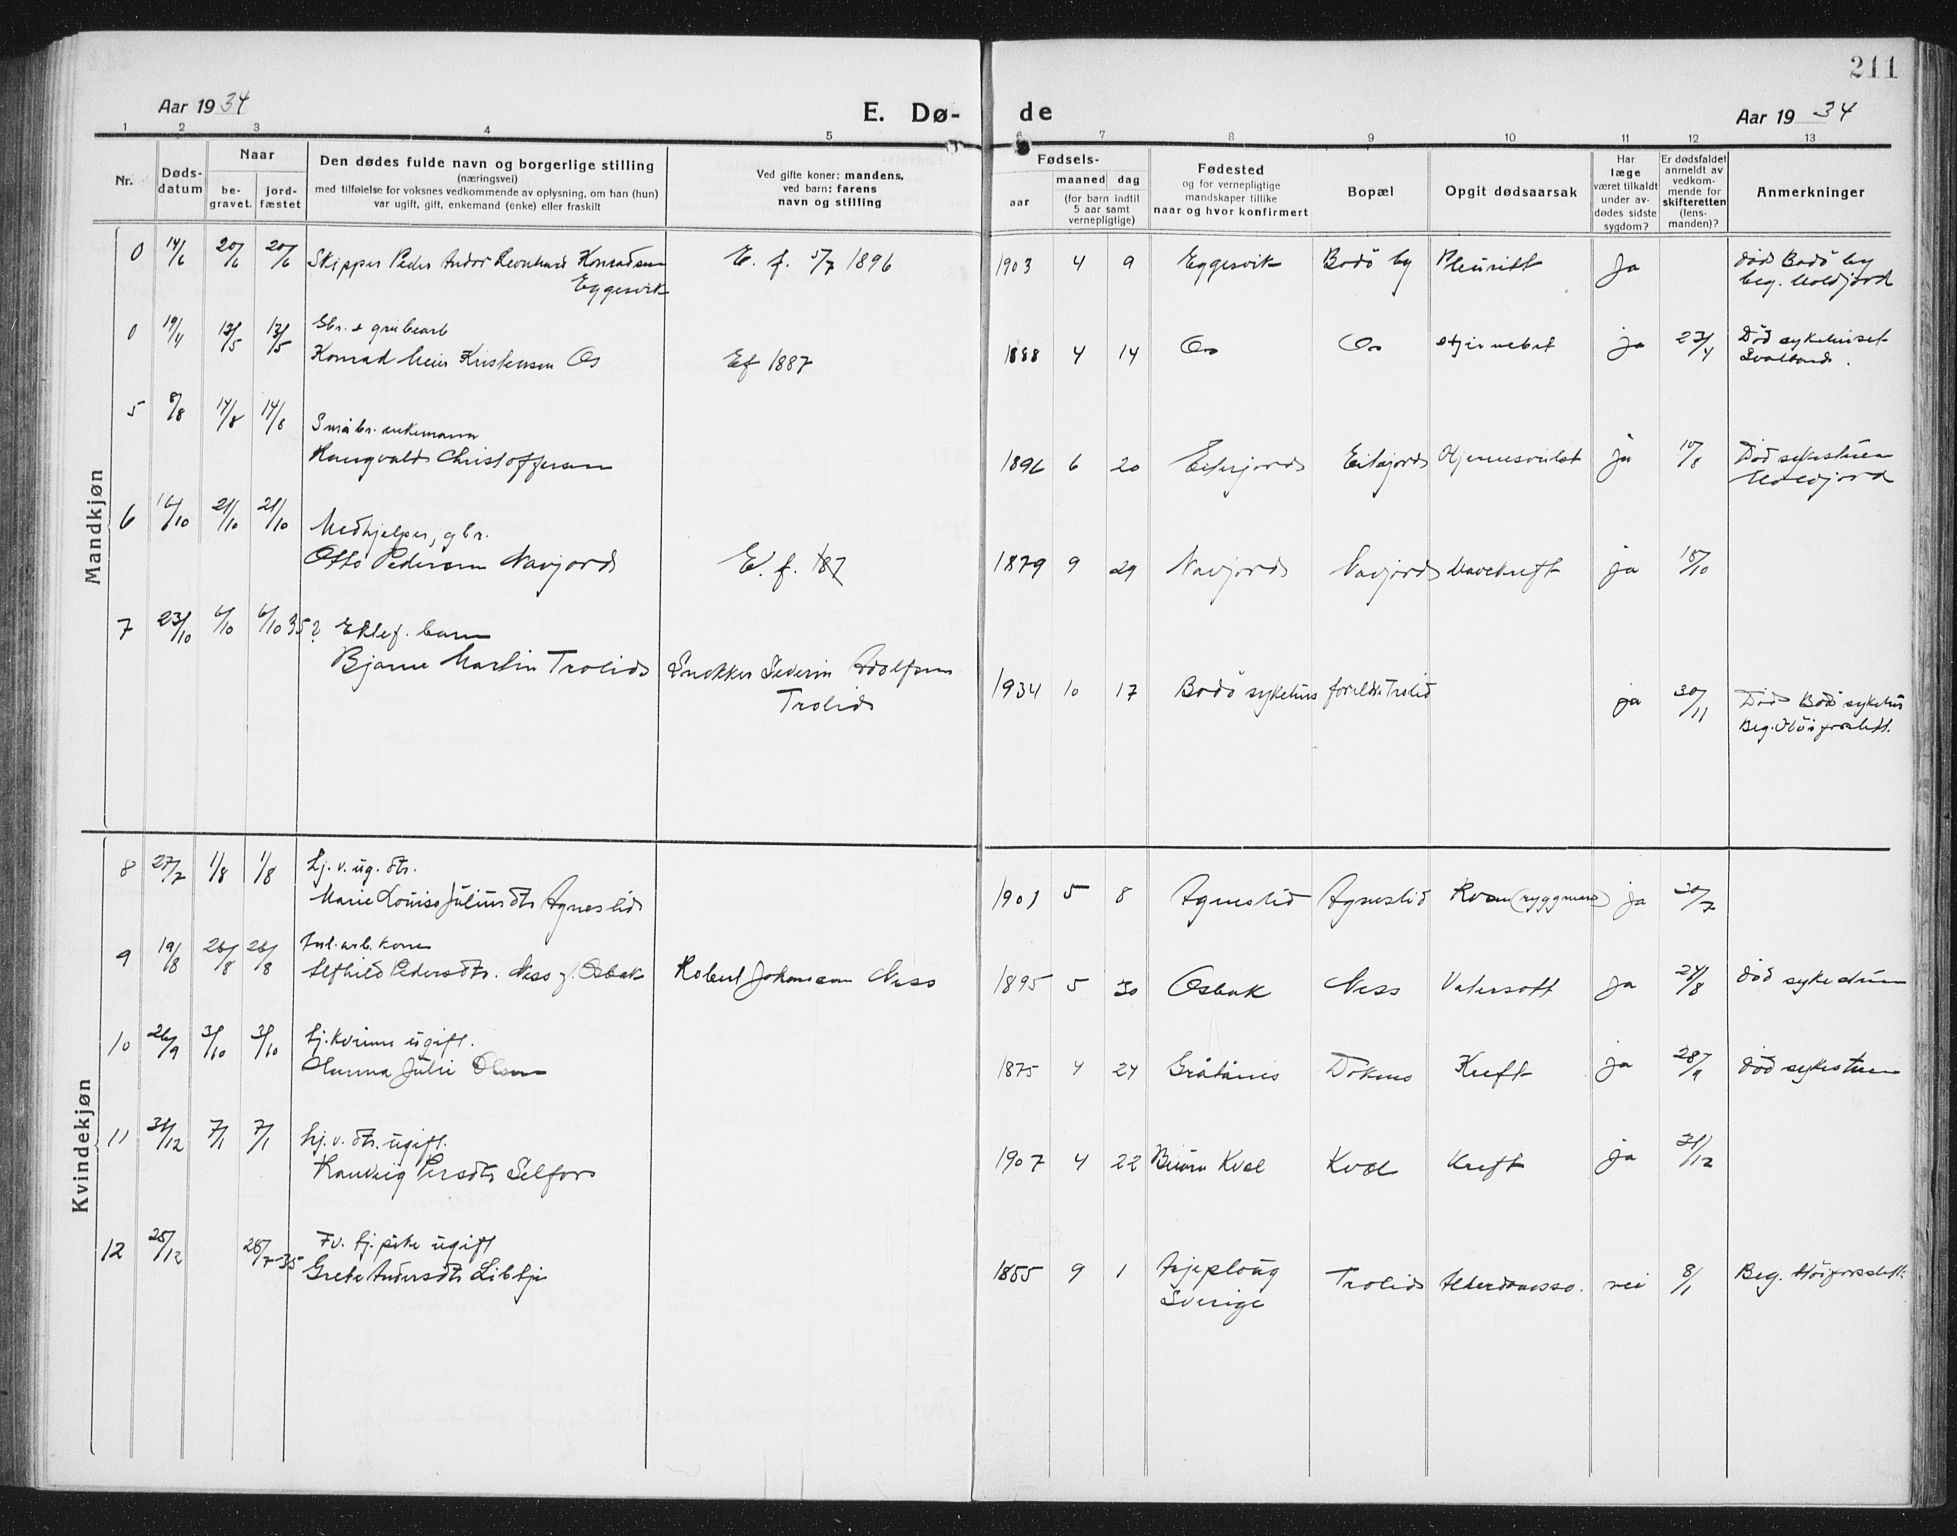 211
Aar 1934
E. Dø-
de
Aar 1934
1 2 3 4 5 6 7 8 9 10 11 12 13
Nr.
Døds-
datum
Naar
be-
gravet.
jord-
fæstet
Den dødes fulde navn og borgerlige stilling
(næringsvei)
med tilføielse for voksnes vedkommende av oplysning, om han (hun)
var ugift, gift, enkemand (enke) eller fraskilt
Ved gifte koner: mandens,
ved barn: farens
navn og stilling
Fødsels-
aar
maaned dag
(for barn indtil
5 aar samt
vernepligtige)
Fødested
og for vernepligtige
mandskaper tillike
naar og hvor konfirmert
Bopæl
Opgit dødsaarsak
Har
læge
været tilkaldt
under av-
dødes sidste
sygdom?
Er dødsfaldet
anmeldt av
vedkom-
mende for
skifteretten
(lens-
manden)?
Anmerkninger
Mandkjøn
0 14/6 20/6 20/6 Skipper Peder Andor Leonhard Konradsen E. f. 5/7 1896 1903 4 9 Eggesvik Bodö by Pleuritt Ja död Bodö by
Eggesvik beg. Moldjord
0 19/4 13/5 13/5 Gbr. & grubearb
Konrad Meier Kristensen Os Ef 1887 1888 4 14 Os Os ja 23/4 Död sykehuset
Svalbard.
5 8/8 14/8 14/8 Småbr. enkemann
Rangvald Christoffersen 1896 6 20 Eiterjord Eiterjord Hjernesvulst ja 10/8 Död sykestuen
Moldjord
6 21/10 21/10 Medhjelper, gbr.
Otto Pedersen Navjord E. f. 187 1879 9 29 Navjord Navjord Mavekreft ja 18/10
7 23/10 6/10 6/10 35? Ektef. barn
Bjarne Martin Trolid Snekker Severin Adolfsen 1934 10 17 Bodö sykehus foreldr. Trolid ja 30/11 Död Bodö sykehus
Trolid Beg. Höiforslett.
Kvindekjøn
8 27/7 1/8 1/8 hj. v. ug. dtr.
Marie Louise Juliusdtr Agneslid 1901 5 8 Agneslid Agneslid (ryggmarv) ja 30/7
9 19/8 26/8 26/8 arb. kone
Alfhild Pedersdtr. Ness f. Osbak Robert Johansen Ness 1895 5 30 Osbak Ness Vatersott ja 24/8 död sykestuen
10 26/9 3/10 3/10 hj. kvinne ugift.
Hanna Julie Olsen 1875 4 24 Gråtånes Dokmo Kreft ja 28/9 död sykestuen
11 31/12 7/1 7/1 hj. v. dtr. ugift.
Hanzig Persdtr Selfors 1907 4 22 Kvæl Kvæl Kreft ja 31/12
12 25/12 28/7-35 Fv. hj. pike ugift
Grete Andersdtr Libbje 1855 9 1 Arjeploug Trolid Alderdomssv. nei 8/1 Beg. Höiforslett.
Sverige